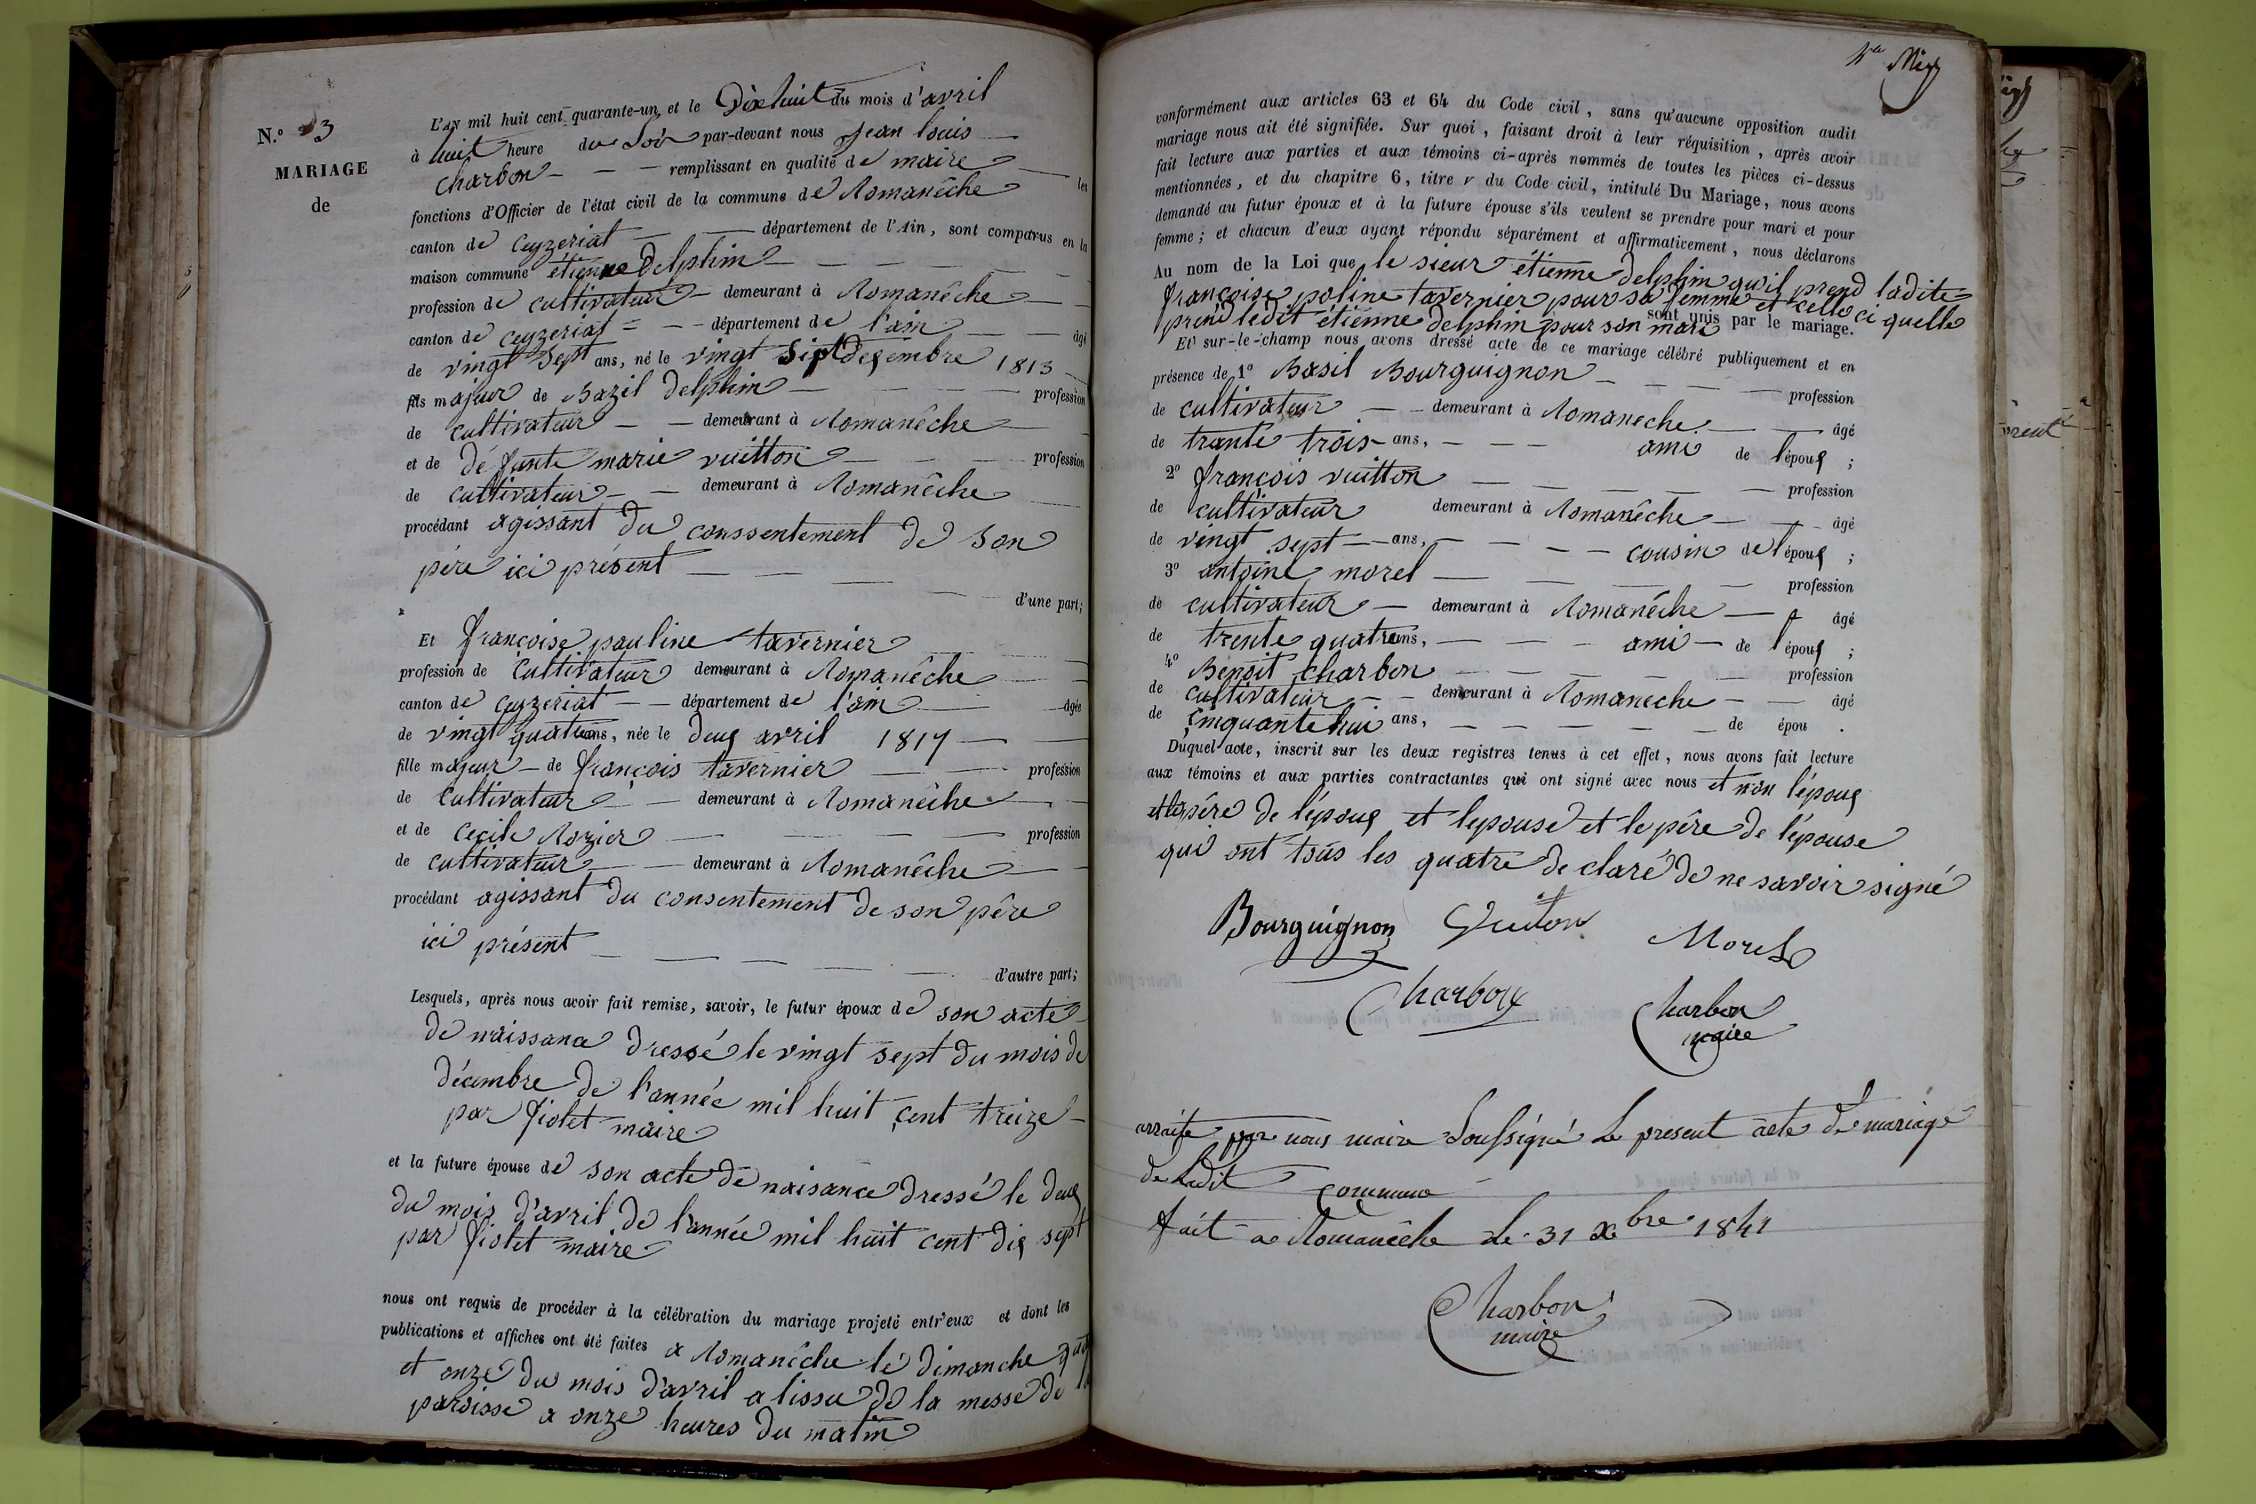 N.º 3
MARIAGE
de
L'AN mil huit cent quarante-un et le Dixhuit du mois d'avril
à huit heure du Soir par-devant nous jean louis
charbon - - - remplissant en qualité de maire les
fonctions d'Officier de l'état civil de la commune de Romanêche
canton de Ceyzeriat département de l'Ain, sont comparus en la
maison commune étienne Delphin
profession de cultivateur demeurant à Romanêche
canton de ceyzeriat = - - département de l'ain âgé
de vingt sept ans, né le vingt Sipt deçembre 1813
fils majeur de Bazil delphin profession
de cultivateur - - demeurant à Romanêche
et de défunte marie vuitton profession
de cultivateur - - demeurant à Romanêche
procédant agissant du conssentement de son
pére ici présent
d'une part;
Et françoise pauline tavernier
profession de cultivateur demeurant à Romanêche
canton de ceyzeriat - - département de l'ain âgée
de vingt quatre ans, née le deuq avril 1817
fille majeur - de françois tavernier profession
de cultivateur - demeurant à Romanêche
et de Cecile Rozier profession
de cultivateur demeurant à Romanêche
procédant agissant du consentement de son pére
ici présent
d'autre part;
Lesquels, après nous avoir fait remise, savoir, le futur époux de son acte
de naissance dressé le vingt sept du mois de
décembre de l'année mil huit çent treize
par fiolet maire
et la future épouse de son acte de naisance dressé le deuq
du mois d'avril de l'année mil huit cent diq sept
par fiolet maire
nous ont requis de procéder à la célébration du mariage projeté entr'eux et dont les
publications et affiches ont été faites a Romanêche le dimanche
et onze du mois d'avril a lissu de la messe de
paroisse a onze heures du matin
conformément aux articles 63 et 64 du Code civil, sans qu'aucune opposition audit
mariage nous ait été signifiée. Sur quoi, faisant droit à leur réquisition, après avoir
fait lecture aux parties et aux témoins ci-après nommés de toutes les pièces ci-dessus
mentionnées, et du chapitre 6, titre v du Code civil, intitulé Du Mariage, nous avons
demandé au futur époux et à la future épouse s'ils veulent se prendre pour mari et pour
femme; et chacun d'eux ayant répondu séparément et affirmativement, nous déclarons
Au nom de la Loi que le sieur étienne delphin qu'il prend ladite
françoise poline tavernier pour sa femme et celle ci quelle
prend ledit étienne delphin pour son mari sont unis par le mariage.
Et sur-le-champ nous avons dressé acte de ce mariage célébré publiquement et en
présence de 1º Basil Bourguignon profession
de cultivateur - - demeurant à Romaneche âgé
de trante trois ans, - - - ami de l'épouq ;
2º françois vuitton profession
de cultivateur demeurant à Romanêche âgé
de vingt sept ans, cousin de l'épouq ;
3º antoine morel profession
de cultivateur - demeurant à Romanêche âgé
de trente quatre ans, ami - de l'épouq ;
4º Benoit charbon profession
de cultivateur - - demeurant à Romaneche âgé
de çinquante hui ans, de épou .
Duquel acte, inscrit sur les deux registres tenus à cet effet, nous avons fait lecture
aux témoins et aux parties contractantes qui ont signé avec nous et non l'épouq
et le pére de l'épouq et lepouse et le pére de l'épouse
qui ont tous les quatre de claré de ne savoir signé
Bourguignon Vuiton Morel
Charbon Charbon
maire
par nous maire Soussigné Le present acte de mariage
de Ladit commune
fait a Romanêche Le 31 xbre 1841
Charbon
maire